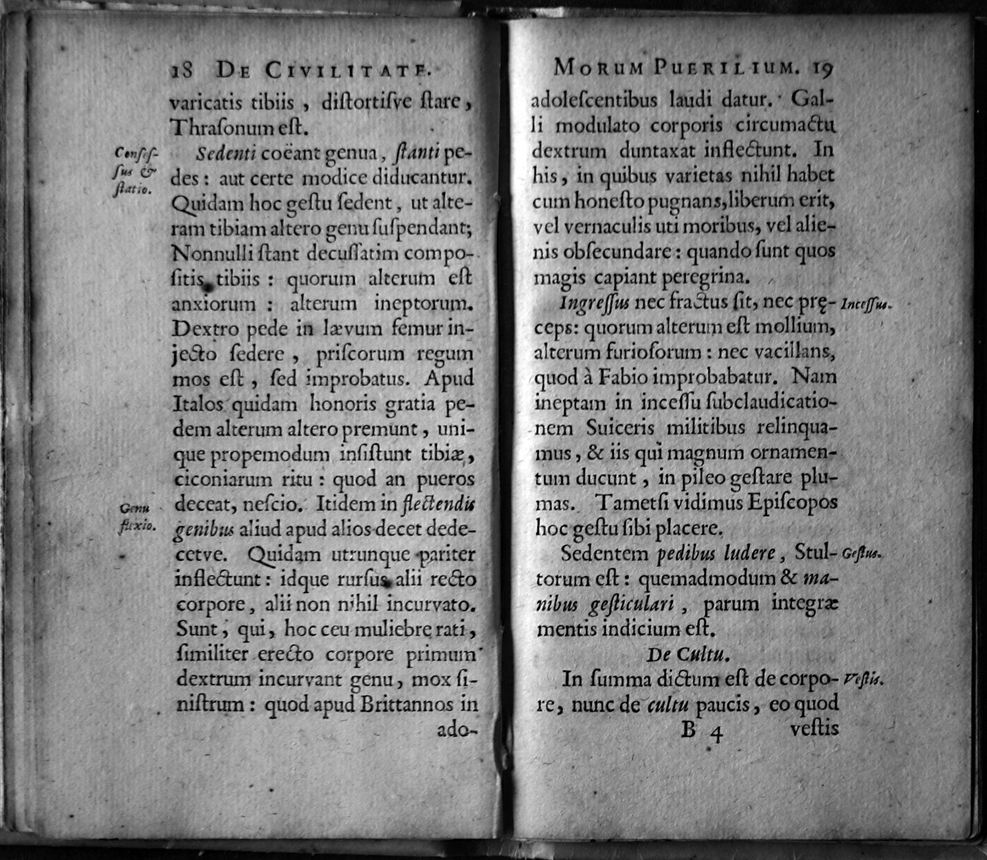 18 DE CIVILITATE.
varicatis tibiis , diſtortiſve ſtare,
Thraſonum eſt.
Conſeſ-
ſus &
ſtatio.
Sedenti coëant genua, ſtanti pe-
des : aut certe modice diducantur.
Quidam hoc geſtu ſedent , ut alte-
ram tibiam altero genu ſuſpendant;
Nonnulli ſtant decuſſatim compo-
ſitis tibiis : quorum alterum eſt
anxiorum : alterum ineptorum.
Dextro pede in lævum femur in-
jecto ſedere , priſcorum regum
mos eſt , ſed improbatus. Apud
Italos quidam honoris gratia pe-
dem alterum altero premunt , uni-
que propemodum inſiſtunt tibiæ,
ciconiarum ritu : quod an pueros
Genu
flexio.
deceat, neſcio. Itidem in flectendis
genibus aliud apud alios decet dede-
cetve. Quidam utrunque pariter
inflectunt : idque rurſus alii recto
corpore , alii non nihil incurvato.
Sunt , qui, hoc ceu muliebre rati ,
ſimiliter erecto corpore primum
dextrum incurvant genu , mox ſi-
niſtrum : quod apud Brittannos in
ado-
MORUM PUERILIUM. 19
adoleſcentibus laudi datur. Gal-
li modulato corporis circumactu
dextrum duntaxat inflectunt. In
his , in quibus varietas nihil habet
cum honeſto pugnans, liberum erit,
vel vernaculis uti moribus, vel alie-
nis obſecundare : quando ſunt quos
magis capiant peregrina.
Ingreſſus nec fractus ſit, nec prę-
Inceſſus.
ceps: quorum alterum eſt mollium,
alterum furioſorum : nec vacillans,
quod à Fabio improbabatur. Nam
ineptam in inceſſu ſubclaudicatio-
nem Suiceris militibus relinqua-
mus , & iis qui magnum ornamen-
tum ducunt , in pileo geſtare plu-
mas. Tametſi vidimus Epiſcopos
hoc geſtu ſibi placere.
Sedentem pedibus ludere , Stul-
Geſtus.
torum eſt : quemadmodum & ma-
nibus geſticulari , parum integræ
mentis indicium eſt.
De Cultu.
In ſumma dictum eſt de corpo-
Veſtis.
re, nunc de cultu paucis , eo quod
B 4 veſtis